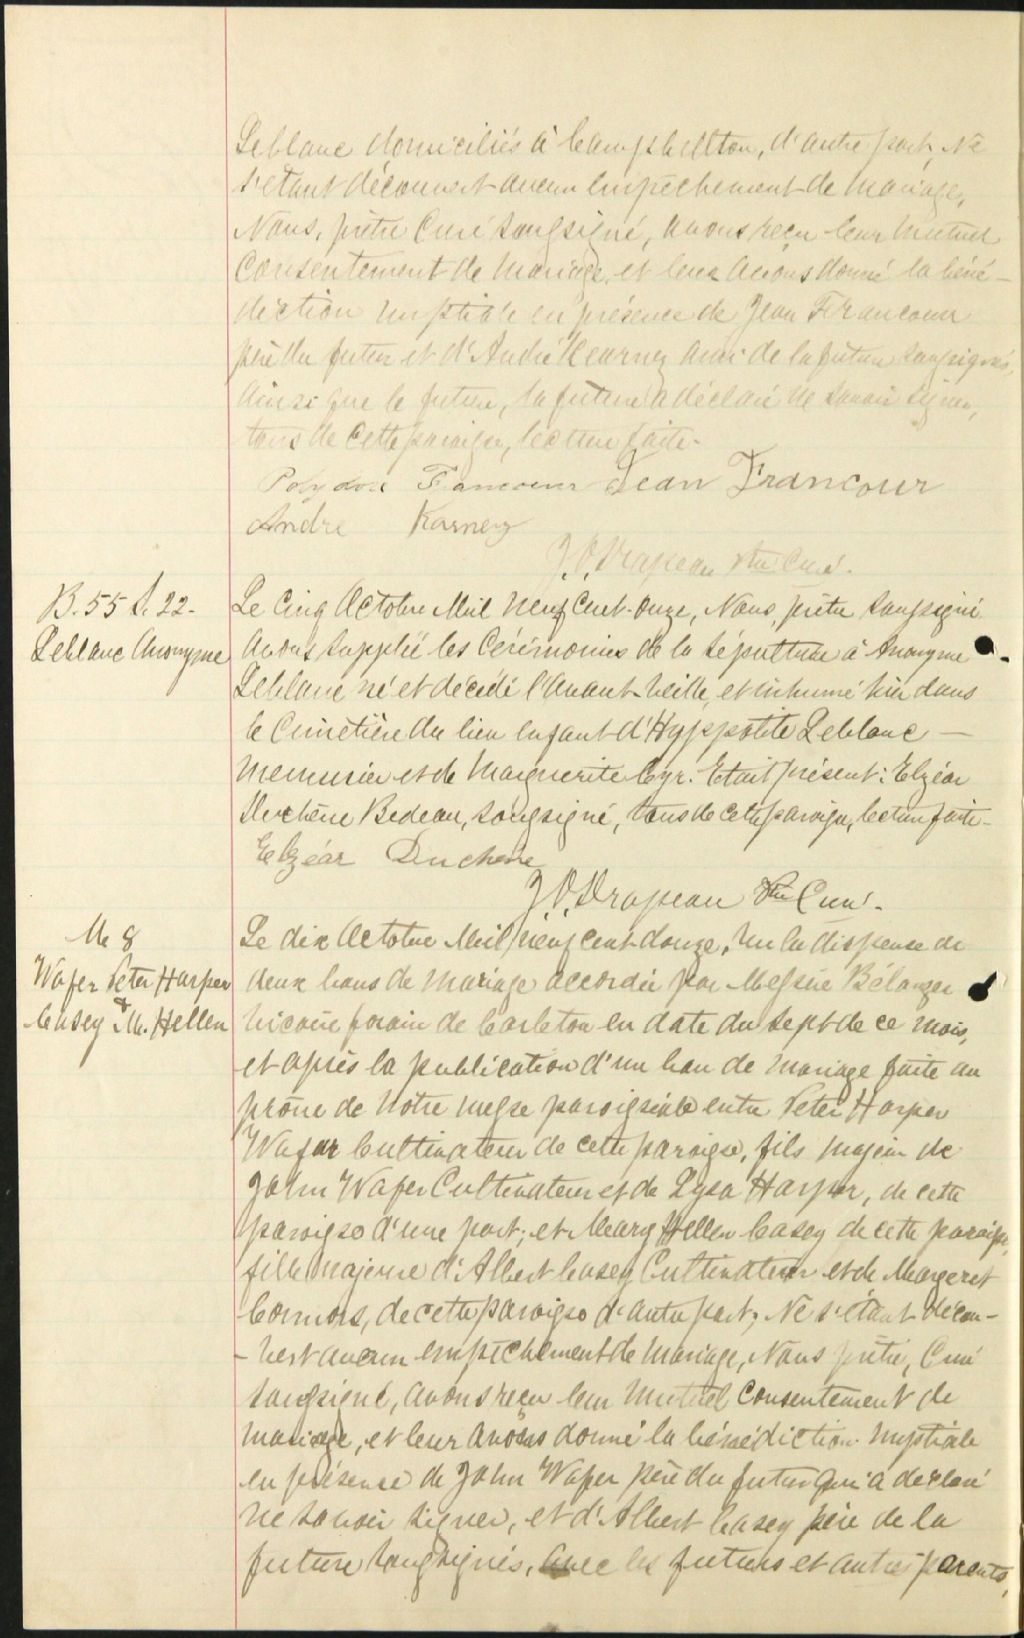 Leblanc domiciliés à Campbellton, d'autre part, Ne
s'étant découvert aucun empêchement de mariage,
Nous, prêtre Curé soussigné, avons reçu leur mutuel
Consentement de mariage et leur avons donné la béné-
diction nuptiale en présence de Jean Francoeur
père du futur et d'André Kearney ami de la future soussignés,
ainsi que le futur, la future a déclaré ne savoir signer,
tous de cette paroisse, lecture faite.
Polydore Francoeur Jean Francour
Andre Karney
J.O. Drapeau Ptre Curé.
B. 55 S. 22-
Leblanc Anonyme
Le Cinq Octobre Mil neuf Cent-onze, Nous, prêtre soussigné
avons supplée les Cérémonies de la sépulture à Anonyme
Leblanc né et décédé l'avant-veille, et inhumé hier dans
le Cimetière du lieu enfant d'Hyppolite Leblanc —
menuisier et de Marguerite Cyr. Etait présent: Elzéar
Duchêne Bedeau, soussigné, tous de cette paroisse, lecture faite-
Elzéar Duchene
J.O. Drapeau Ptre Curé.
M 8
Wafer Peter Harper
&
Casey M. Hellen
Le dix Octobre Mil neuf cent-douze, Vu la dispense de
deux bans de mariage accordée par Messire Bélanger
Vicaire forain de Carleton en date du sept de ce mois,
et après la publication d'un ban de mariage faite au
prône de notre messe paroissiale entre Peter Harper
Wafer Cultivateur de cette paroisse, fils majeur de
John Wafer Cultivateur et de Lysa Harper, de cette
paroisse d'une part; et Mary Hellen Casey de cette paroisse,
fille majeure d'Albert Casey Cultivateur et de Margeret
Connors, de cette paroisse d'autre part; Ne s'étant décou-
-vert aucun empêchement de mariage, Nous prêtre, Curé
soussigné, avons reçu leur mutuel Consentement de
mariage, et leur avons donné la bénédiction nuptiale
en présence de John Wafer père du futur qui a déclaré
ne savoir signer, et d'Albert Casey père de la
future soussignés, avec les futurs et autres parents,